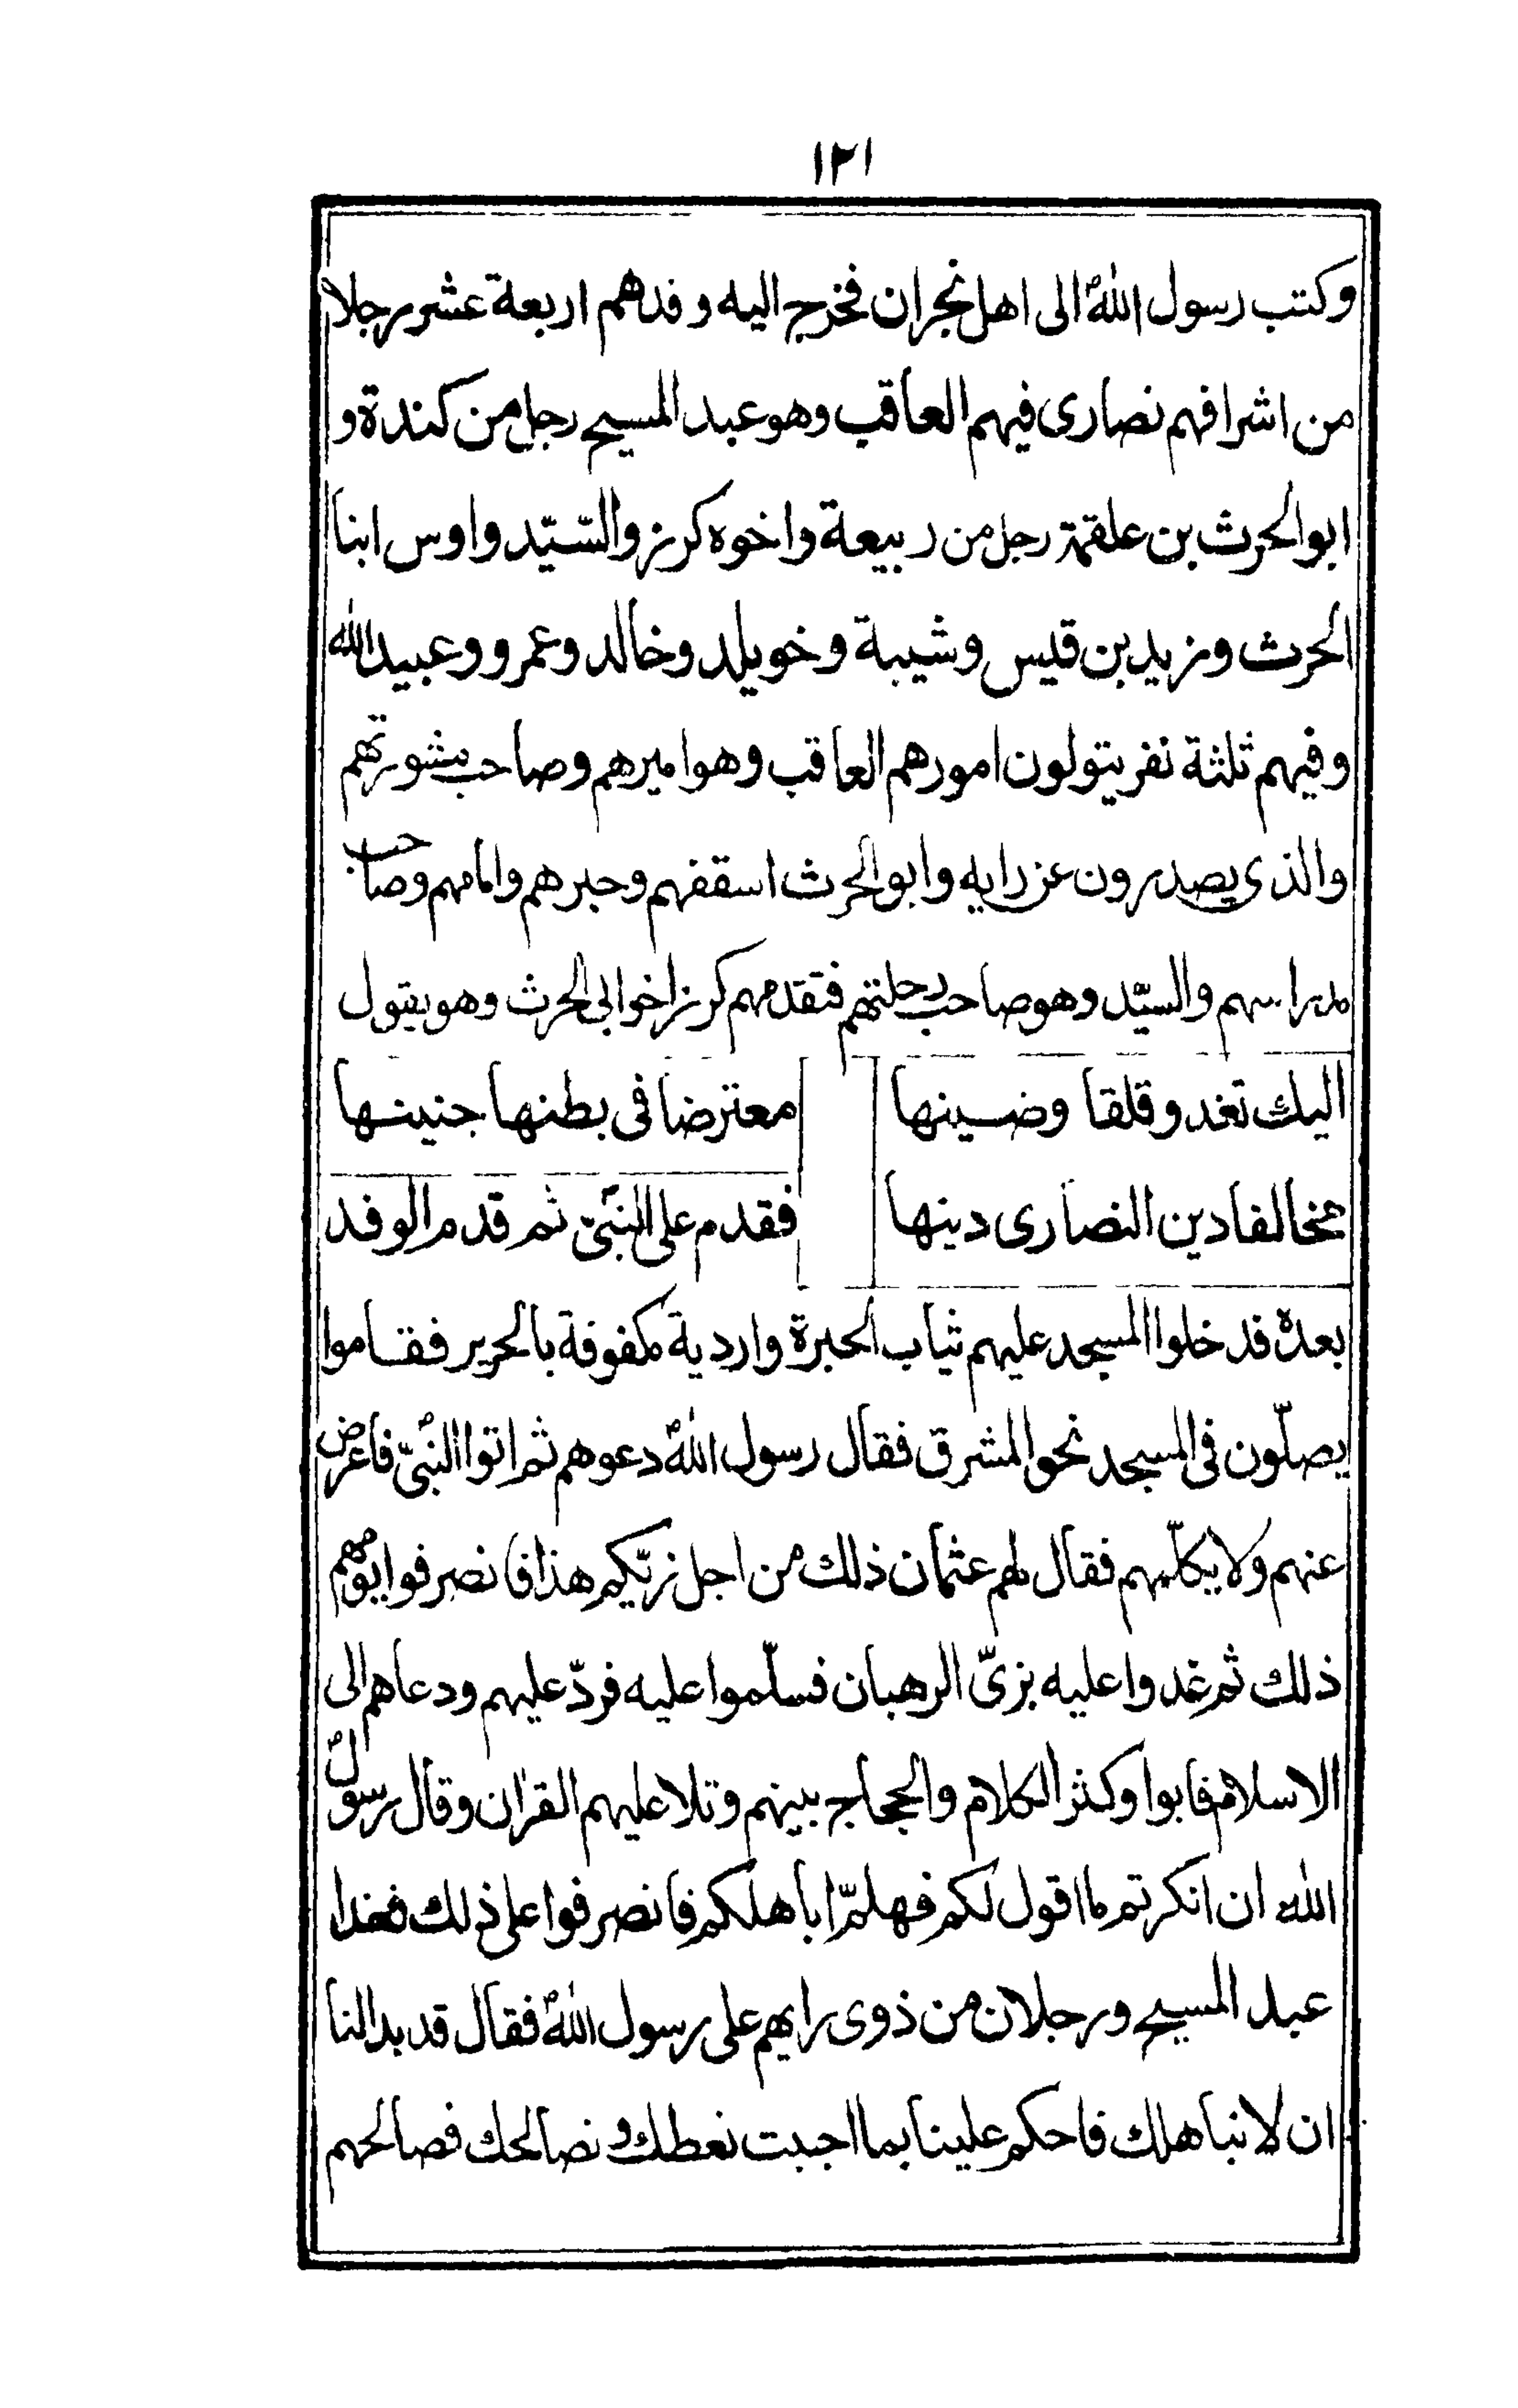 ١٢١
وكتب رسول اللهؐ الى اهل نجران فخرج اليه وفدهم اربعة عشر رجلا
من اشرافهم نصارى فيهم العاقب وهو عبد المسيح رجل من كندة و
ابو الحرث بن علقمة رجل من ربيعة واخوه كرز والسّيّد واوس ابنا
الحرث وزيد بن قيس وشيبة وخويلد وخالد وعمرو وعبيد الله
وفيهم ثلثة نفر يتولون امورهم العاقب وهو اميرهم وصاحب مشورتهم
والذى يصدرون عن رايه وابو الحرث اسقفهم وحبرهم وامامهم وصاحب
مدراسهم والسيّد وهو صاحب رحلتهم فتقدمهم كرز اخو ابى الحرث وهو يقول
اليك تغدو قلقا وضينها معترضا فى بطنها جنينها
مخالفا دين النصارى دينها فقدم على النبّىؐ ثم قدم الوفد
بعده فدخلوا المسجد عليهم ثياب الحبرة واردية مكفوفة بالحرير فقاموا
يصلّون فى المسجد نحو المشرق فقال رسول اللهؐ دعوهم ثم اتوا النبّىؐ فاعرض
عنهم ولا يكلّمهم فقال لهم عثمان ذلك من اجل زيّكم هذا فانصرفوا يومهم
ذلك ثم غدوا عليه بزىّ الرهبان فسلّموا عليه فردّ عليهم ودعاهم الى
الاسلام فابوا وكثر الكلام والحجاج بينهم وتلا عليهم القران وقال رسولؐ
الله ان انكرتم ما اقول لكم فهلمّ اباهلكم فانصرفوا على ذلك فغدا
عبد المسيح ورجلان من ذوى رايهم على رسول اللهؐ فقال قد بدا لنا
ان لا نباهلك فاحكم علينا بما احببت نعطك و نصالحك فصالحهم